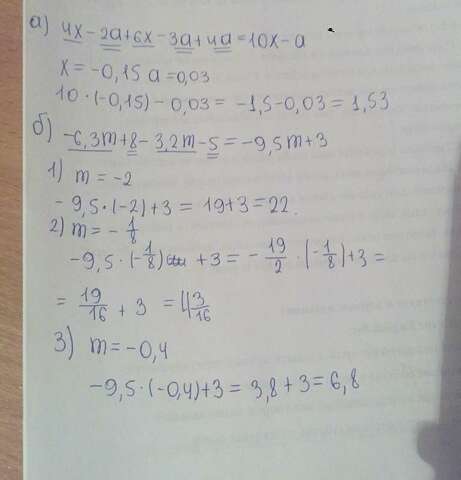 а) 4x-2a+6x-3a+4a=10x-a
x=-0,15 a=0,03
10·(-0,15)-0,03=-1,5-0,03=1,53
б) -6,3m+8-3,2m-5=-9,5m+3
1) m=-2
-9,5·(-2)+3=19+3=22.
2) m=-1/8
-9,5·(-1/8) +3=-19/2·(-1/8)+3=
=19/16+3=4 3/16
3) m=-0,4
-9,5·(-0,4)+3=3,8+3=6,8